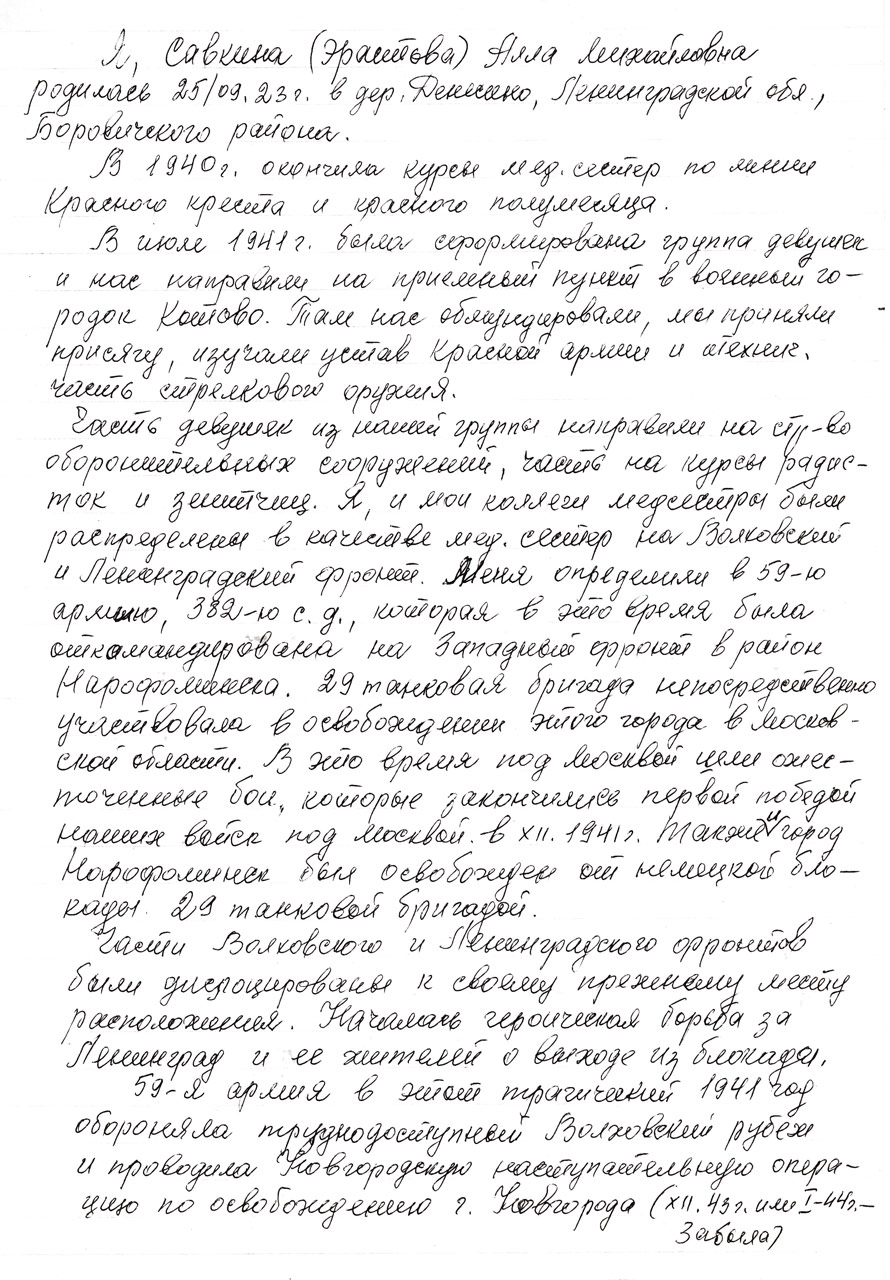 Я, Савкина (Эрастова) Алла Михайловна
родилась 25/09.23г. в дер. Денесино, Ленинградской обл.,
Боровичского района.
В 1940г. окончила курсы мед. сестер по линии
Красного креста и красного полумесяца.
В июле 1941г. была сформирована группа девушек
и нас направили на приемный пункт в военный го-
родок Котово. Там нас обмундировали, мы приняли
присягу, изучали устав Красной армии и технич.
часть стрелкового оружия.
Часть девушек из нашей группы направили на стр-во
оборонительных сооружений, часть на курсы радис-
ток и зенитчиц. Я, и мои коллеги медсестры были
распределены в качестве мед. сестер на Волховский
и Ленинградский фронт. Меня определили в 59-ю
армию, 382-ю с.д., которая в это время была
откомандирована на Западный фронт в район
Нарофоминска. 29 танковая бригада непосредственно
участвовала в освобождении этого города в Москов-
ской области. В это время под Москвой шли ожес-
точенные бои, которые закончились первой победой
наших войск под Москвой. в XII. 1941г. Также и город
Нарофоминск был освобожден от немецкой бло-
кады 29 танковой бригадой.
Части Волховского и Ленинградского фронтов
были дислоцированы к своему прежнему месту
расположения. Началась героическая борьба за
Ленинград и ее жителей о выходе из блокады.
59-я армия в этот трагический 1941 год
обороняла труднодоступный Волховский рубеж
и проводила Новгородскую наступательную опера-
цию по освобождению г. Новгорода (XII.43г. или I-44г.-
Забыла)